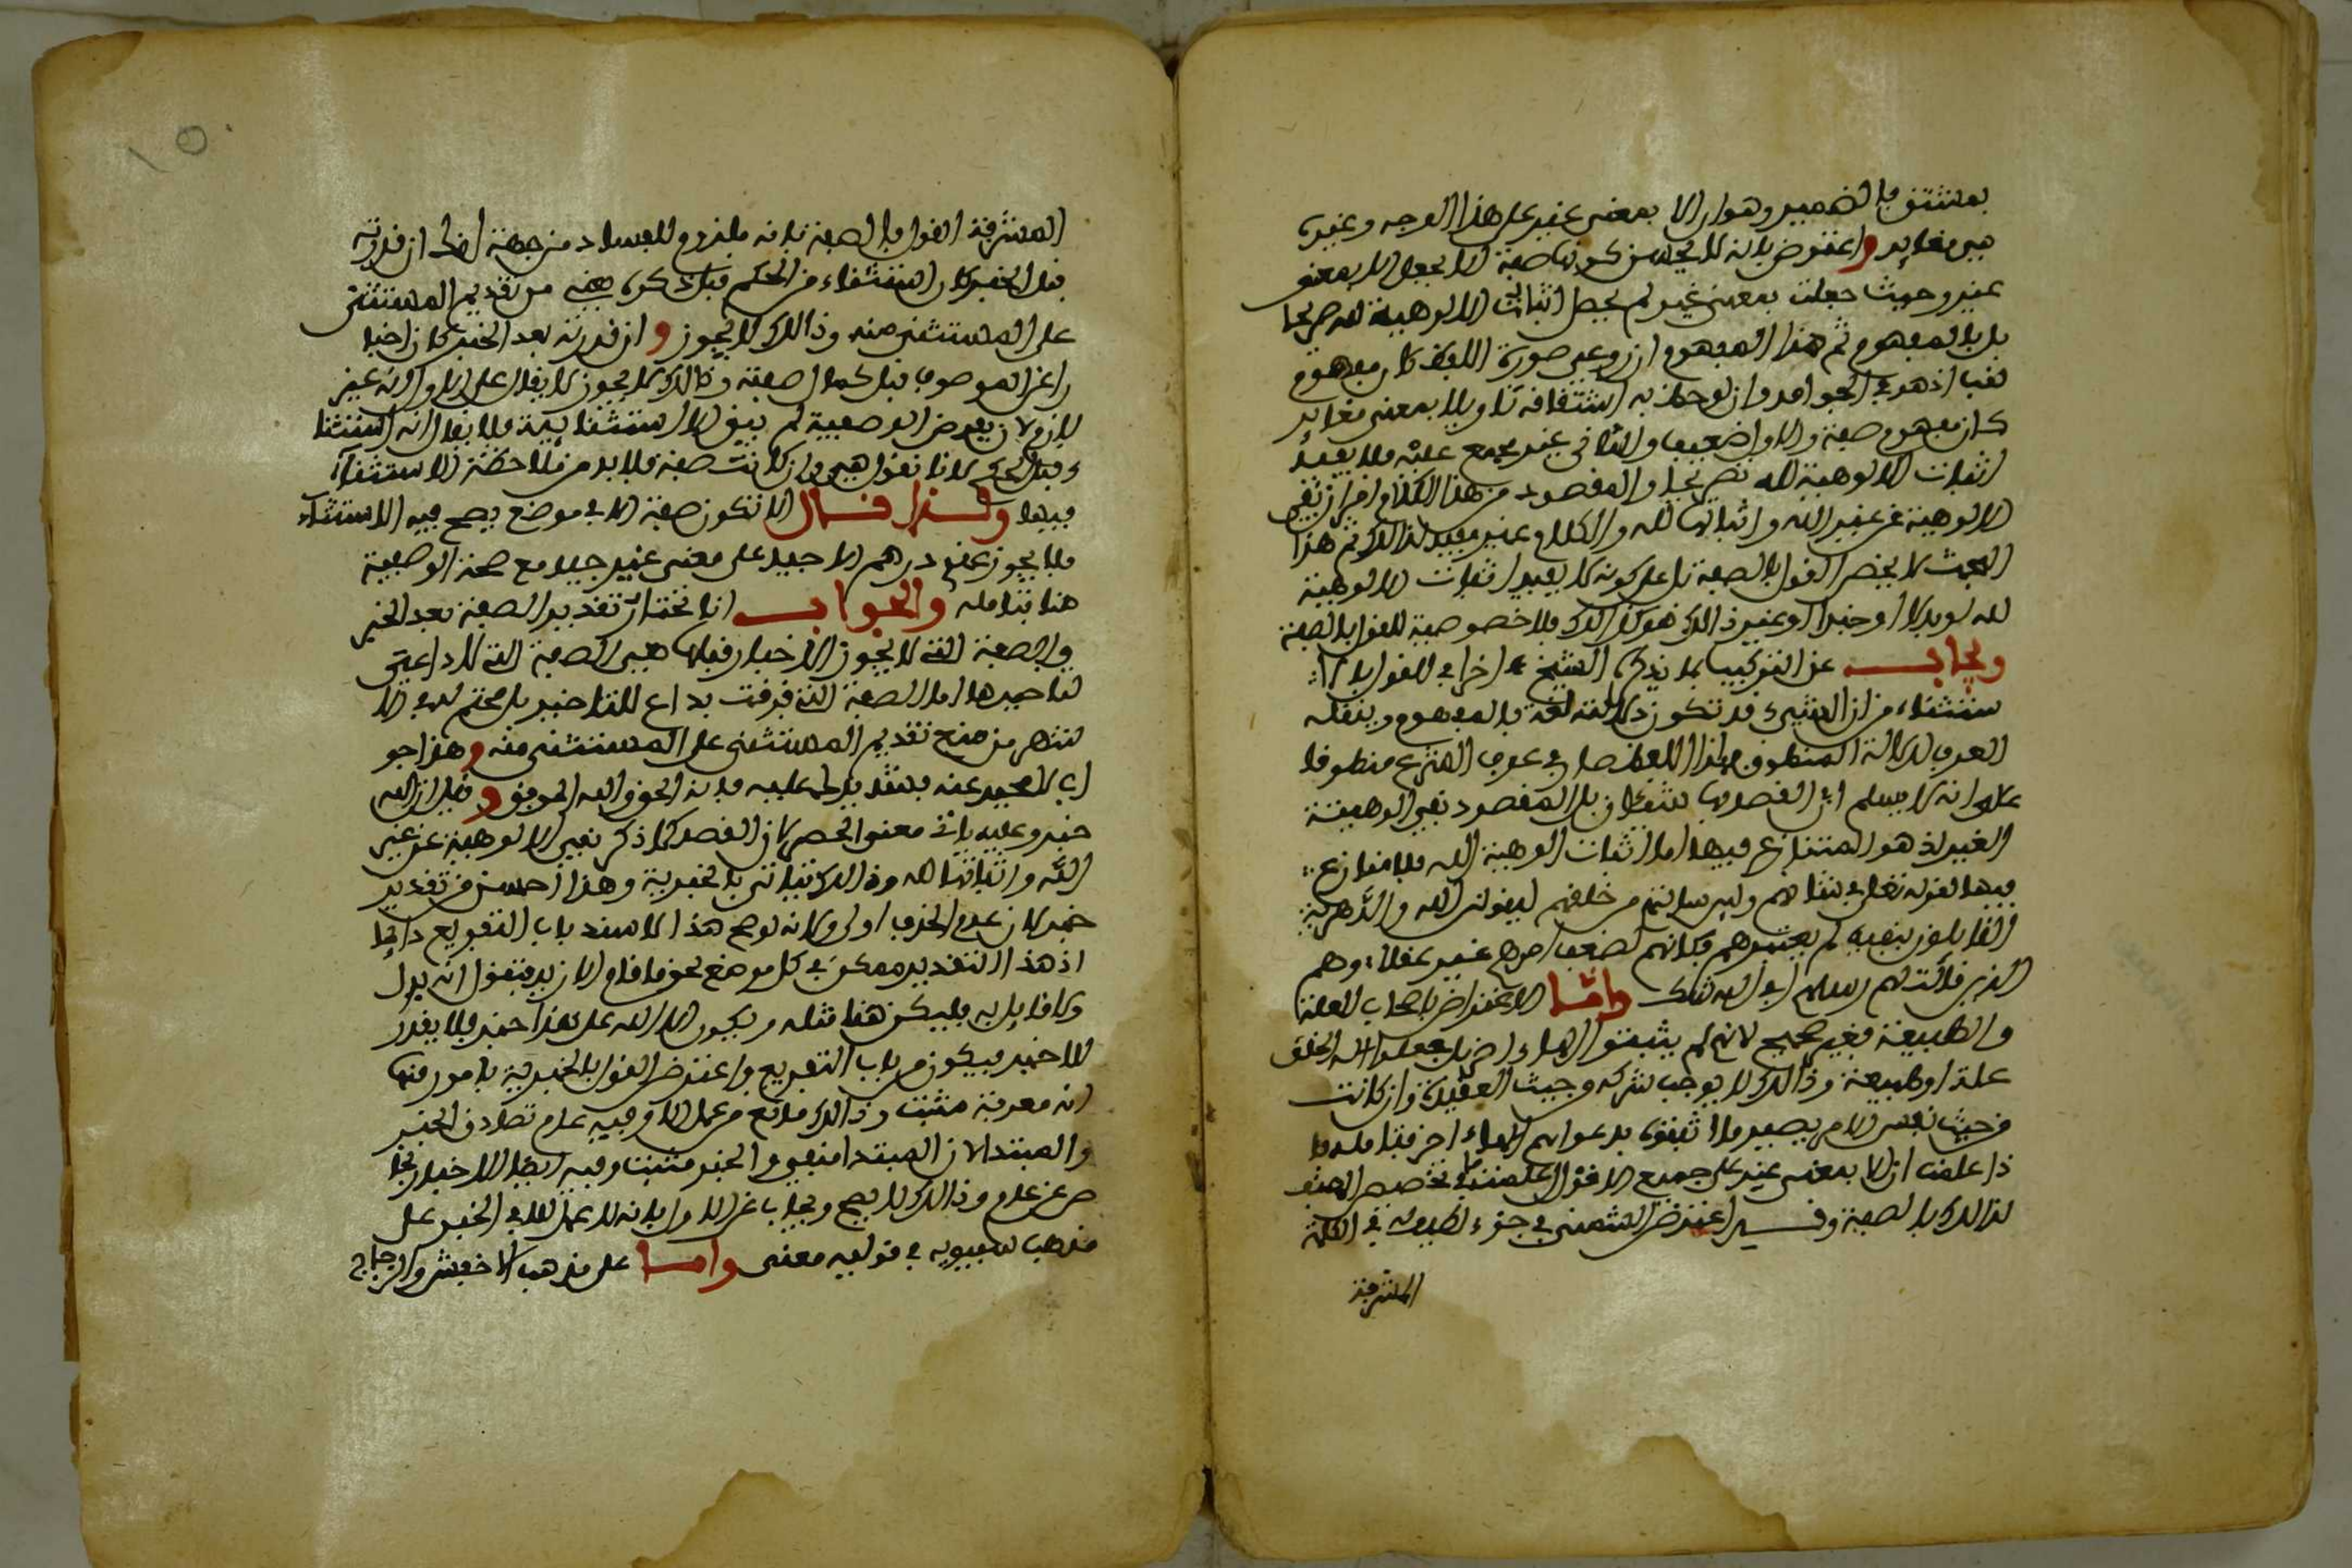 بمشتق فالضمير وهو ان الا بمعنى غير على هذا الوجه وغيره
هي مغاير واعترض بانه لا يحسن كونها صفة الا بجعل الا بمعنى
غير وحيث جعلت بمعنى غير لم يحصل اثبات الالوهية لله صريحا
بل بالمفهوم ثم هذا المفهوم ان روعي صورة اللفظ كان مفهوم
لقب اذ هو في الجوامد وان لوحظ به اشتقاقه تاويلا بمعنى مغاير
كان مفهوم صفة والاول ضعيف والثاني غير مجمع عليه فلا يفيد
اثبات الالوهية لله تصريحا والمقصود من هذا الكلام امران نفي
الالوهية عن غير الله واثباتها لله والكلام غير مفيد لذلك ثم هذا
البحث لا يخص القول بالصفة بل على كونه لا يفيد اثبات الالوهية
لله لو بدلا او خبرا او غير ذلك هو كذلك فلا خصوصية للقول بالصفة
ويجاب عن التركيب بما يذكره الشيخ اخرا في القول بالا
ستثناء من ان الشيء قد تكون دلالته لغة بالمفهوم وينقله
العرف لدلالة المنطوق فهذا اللفظ صار في عرف الشرع منطوقا
على انه لا يسلم ان القصد بها شيئان بل المقصود نفي الوهية
الغير اذ هو المتنازع فيها اما اثبات الوهية الله فلا منازع
فيها لقوله تعالى في شانهم ولئن سالتهم من خلقهم ليقولن الله والدهرية
القائلون بنفيه لم يعتبرهم فكانهم لضعف امرهم غير عقلاء وهم
الذين قالت لهم رسلهم افي الله شك واما الاعتراض باصحاب العلة
والطبيعة فغير صحيح لانهم لم يثبتوا الها اخر بل جعلوا اله الخلق
علة او طبيعة وذلك لا يوجب شركه وحيث العقيدة وان كانت
من حيث نفس الامر يصير ما اثبتوه بدعواهم الها اخر فتامله وا
ذا علمت ان الا بمعنى غير على جميع الاقوال علمت ما في تخصيص المصنف
لذلك بالصفة وقد اعترض الشمني في جزء لطيف له في الكلمة
المشرفة
المشرفة القول بالصفة بانه ملزوم للفساد من جهة اخرى ان قدرته
قبل الخبر كان استثناء من الحكم قبل ذكره فهي من تقديم المستثنى
على المستثنى منه وذلك لا يجوز وان قدرته بعد الخبر كان اخبا
را عن الموصوف قبل كمال صفته وذلك لا يجوز لا يقال على الاول انه غير
لازم لان بفرض الوصفية لم يبق الاستثناء بتة فلا يقال انه استثنا
ء قبل الحكم لانا نقول هي وان كانت صفة فلا بد من ملاحظة الاستثناء
فيها ولذا قال لا تكون صفة الا في موضع يصح فيه الاستثناء
فلا يجوز عندي درهم الا جيد على معنى غير جيد مع صحة الوصفية
هنا فتامله والجواب انا نختار تقدير الصفة بعد الخبر
والصفة التي لا يجوز الاخبار قبلها هي الصفة التي لا داعي
لتاخيرها اما الصفة التي فرقت بداع للتاخير بل محتم لدفع الا
شتهر من منع تقديم المستثنى على المستثنى منه وهذا جو
اب لا محيد عنه فشد يدك عليه فانه الحق والله الموفق وقيل ان الله
خبر وعليه ياتي معنى الحصر لان القصد كما ذكر نفي الالوهية عن غير
الله واثباتها لله وذلك يتاتى بالخبرية وهذا احسن من تقدير
خبر لان عدم الحذف اولى ولانه لو صح هذا لا نسد باب التفريع دائما
اذ هذا التقدير ممكن في كل موضع نحو ما قام الا زيد فتقول انه بدل
ولا قائل به فليكن هنا مثله ويكون الا الله على هذا خبر فلا يقدر
للا خبر فيكون من باب التفريع واعترض القول بالخبرية بامور منها
انه معرفة مثبت وذلك مانع من عمل لا وفيه عدم تصادق الخبر
والمبتدا لان المبتدا منفي والخبر مثبت وفيه ايضا الاخبار بخا
ص عن عام وذلك لا يصح ويجاب عن الاول بانه لا عمل للا في الخبر على
مذهب سيبويه في قوليه معنى واما على مذهب الاخفش والزجاج